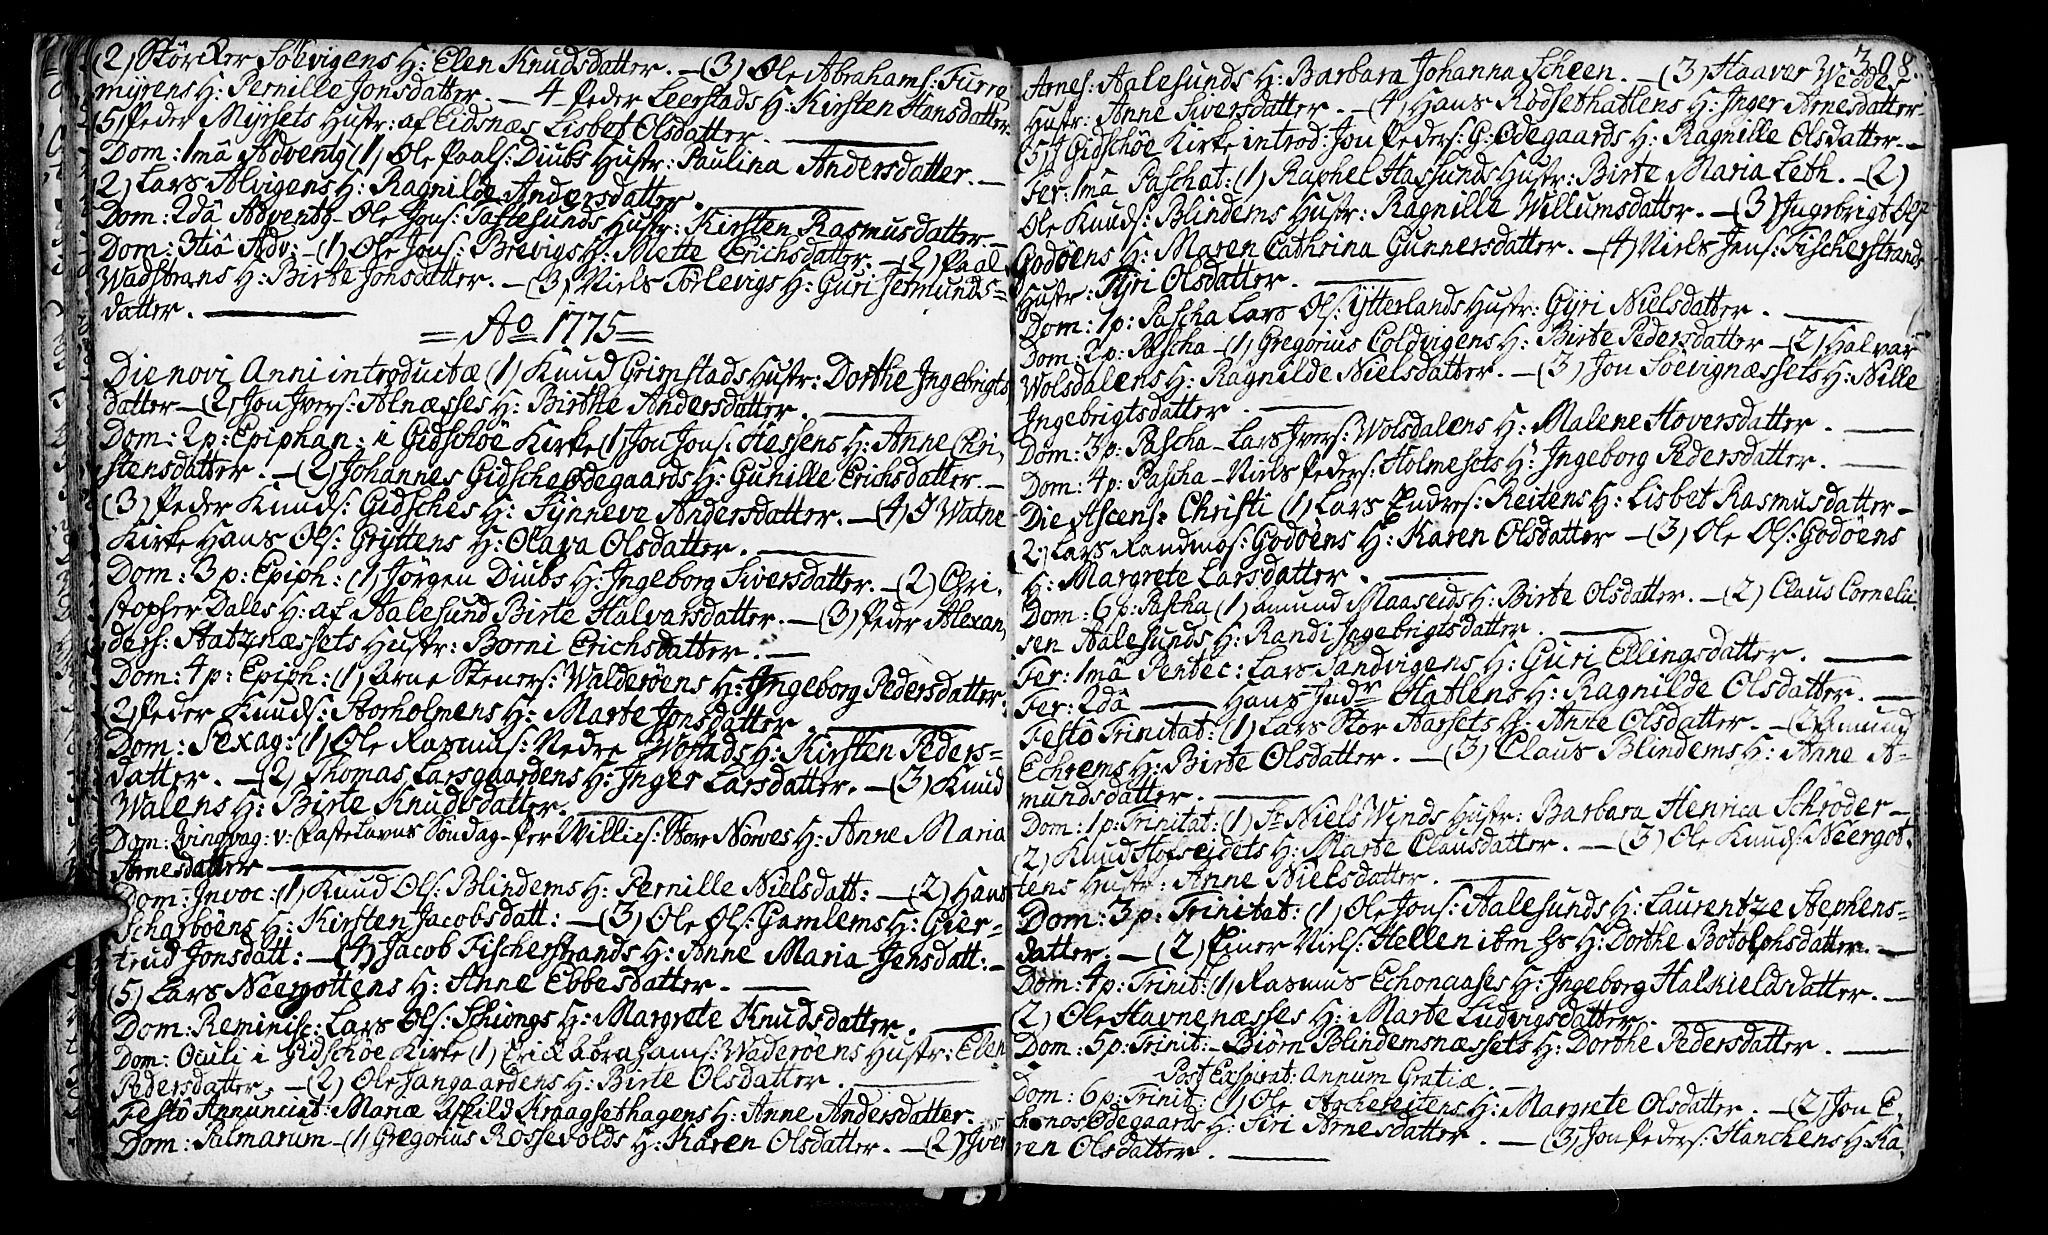 (2) Störcker Solvigens H: Elen Knudsdatter. — (3) Ole Abrahams: Furre
myrens H: Pernille Jonsdatter — 4 Peder Leerstads H: Kirsten Hansdatter.
5) Peder Myrsets Hustr: af Eidsnæs Lisbet Olsdatter.
Dom: 1mâ Advent (1) Ole Paals: Diubs Hustr: Paulina Andersdatter. —
2) Lars Alvigens H: Ragnilde Andersdatter.
Dom: 2dâ Advent — Ole Jons: Saltesunds Hustr: Kirsten Rasmusdatter. —
Dom: 3tiâ Adv: — (1) Ole Jons: Brevigs H: Mette Erichsdatter. — (2) Paal
Wadstrans H: Birte Jonsdatter. — (3) Niels Torlevigs H: Guri Jetmunds=
datter.
= Ao 1775 =
Die novi Anni introductæ (1) Knud Grimstads Hustr: Dorthe Ingebrigts
datter — (2) Jon Ivers: Alnæsses H: Birthe Andersdatter.
Dom: 2 p: Epiphan: i Gidschöe Kirke (1) Jon Jons: Hessens H: Anne Chri,
stensdatter. — (2) Johannes Gidsche Ødegaards H: Gunille Erichsdatter. —
(3) Peder Knuds: Gidsches H: Synneve Andersdatter. — (4) I Watne
Kirke Hans Ols: Gryttens H: Olava Olsdatter.
Dom: 3 p: Epiph: (1) Jörgen Diubs H: Ingeborg Siversdatter. — (2) Chri,
stopher Dales H: af Aalesund Birte Halvarsdatter. — (3) Peder Alexan,
ders: Statznæssets Hustr: Borni Erichsdatter. —
Dom: 4 p: Epiph: (1) Arne Steners: Walderöens H: Ingeborg Pedersdatter.
2) Peder Knuds: Storholmens H: Marte Jonsdatter.
Dom: Sexag: (1) Ole Rasmus: Nedre Worlads H: Kirsten Peders=
datter. — (2) Thomas Larsgaardens H: Inger Larsdatter. — (3) Knud
Walens H: Birte Knudsdatter.
Dom: Qvingvag: v: Fastelavns Söndag — Per Willies: Store Nörves H: Anne Maria
Arnesdatter
Dom: Invoc: (1) Knud Ols: Blindems H: Pernille Nielsdatt: — (2) Hans
Scharböens H: Kirsten Jacobsdatt: — (3) Ole Ols: Gamlems H: Gier=
trud Jonsdatt: — (4) Jacob Fischerstrands H: Anne Maria Jensdatt: —
(5) Lars Neergottens H: Anne Ebbesdatter. —
Dom: Reminisc: Lars Ols: Schiongs H: Margrete Knudsdatter.
Dom: Oculi i Gidschöe Kirke (1) Erick Abrahams: Waderöens Hustr: Elen
Pedersdatter. — (2) Ole Jangaardens H: Birte Olsdatter.
Festô Annunciat: Mariæ Askild Kraagsethagens H: Anne Andersdatter.
Dom: Palmarum — (1) Gregorius Rossevolds H: Karen Olsdatter. — (2) Iver
308.
Arnes: Aalesunds H: Barbara Johanna Scheen. — (3) Haaver Wedde
Hustr: Anne Siversdatter. — (4) Hans Rödsethatlens H: Inger Arnesdatter —
(5) I Gidschöe Kirke introd: Jon Peders: G: Ødegaards H: Ragnille Olsdatter. —
Fer: 1mâ Paschat: (1) Raphel Hasunds Hustr: Birte Maria Leth. — (2)
Ole Knuds: Blindems Hustr: Ragnille Willumsdatter. — (3) Ingebrigt Ols
Godöens H: Maren Cathrina Gunnersdatter. — (4) Niels Jens: Fischerstrands
Hustr: Tyri Olsdatter.
Dom: 1 p: Pascha Lars Ols: Ytterlands Hustr: Gyri Nielsdatter.
Dom: 2 p: Pascha — (1) Gregorius Coldvigens H: Birte Pedersdatter — (2) Halvar
Wolsdalens H: Ragnilde Nielsdatter. — (3) Jon Soevignæssets H: Nille
Ingebrigtsdatter.
Dom: 3 p: Pascha — Lars Ivers: Wolsdalens H: Malene Hoversdatter.
Dom: 4 p: Pascha — Niels Peders: Holmesets H: Ingeborg Pedersdatter.
Die Ascens: Christi (1) Lars Endres: Reitens H: Lisbet Rasmusdatter —
2) Lars Randmos: Godöens H: Karen Olsdatter — (3) Ole Ols: Godöens
H: Margrete Larsdatter.
Dom: 6 p: Pascha (1) Amund Maaseids H: Birte Olsdatter. — (2) Claus Corneliu
sen Aalesunds H: Randi Ingebrigtsdatter.
Fer: 1mâ Pentec: Lars Sandvigens H: Guri Ellingsdatter.
Fer: 2dâ — Hans Indr Hatlens H: Ragnilde Olsdatter. —
Festô Trinitat: (1) Lars Stor Aassets H: Anne Olsdatter. — (2) Amund
Echrems H: Birte Olsdatter. — (3) Claus Blindems H: Anne A=
mundsdatter.
Dom: 1 p: Trinitat: (1) Sr Niels Winds Hustr: Barbara Henrica Schröder —
(2) Knud Hofseidets H: Marte Clausdatter. — (3) Ole Knuds: Neergot=
tens Hustr: Anne Nielsdatter.
Dom: 3 p: Trinitat: (1) Ole Jons: Aalesunds H: Laurentze Stephens=
datter. — (2) Einer Niels: Hellen H: Dorthe Botolphsdatter. —
Dom: 4 p: Trinit: (1) Rasmus Echonaases H: Ingeborg Halkieldsdatter. —
(2) Ole Havnenæsses H: Marte Ludvigsdatter.
Dom: 5 p: Trinit: — Biörn Blindemsnæssets H: Dorthe Pedersdatter.
Post Exspirat: Annum Gratiæ.
Dom: 6 p: Trinit: (1) Ole H: Margrete Olsdatter. — (2) Jon E,
chonos Ødegaards H: Siri Arnesdatter. — (3) Jon Peders: Hanckens H: Ka,
ren Olsdatter.